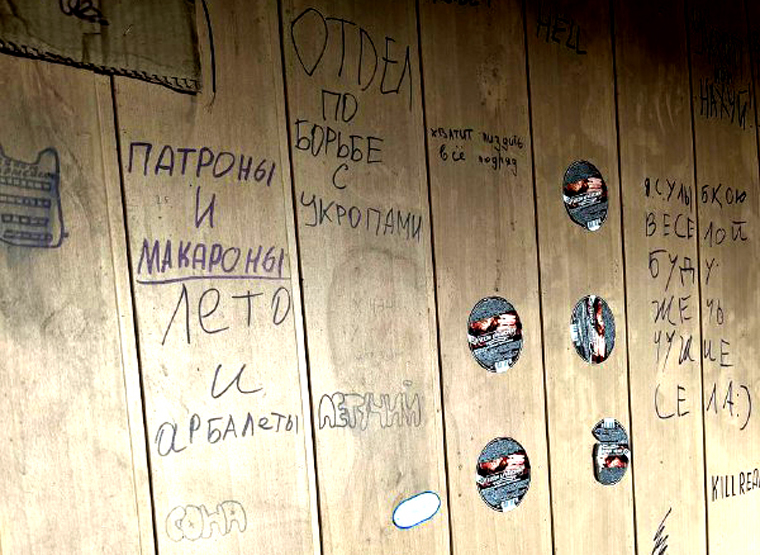 ПАТРОНЫ
И
МАКАРОНЫ
Лето
и
арбалеты
СОНА
ОТДЕЛ
ПО
БОРЬБЕ
С
УКРОПАМИ
ЛЕТУЧИЙ
ХВАТИТ пиздить
всё подряд
HELL
НАХУЙ
Я С УЛЫБКОЮ
ВЕСЕЛОЙ
БУДУ
ЖЕЧЬ
ЧУЖИЕ
СЕЛА:)
KILL